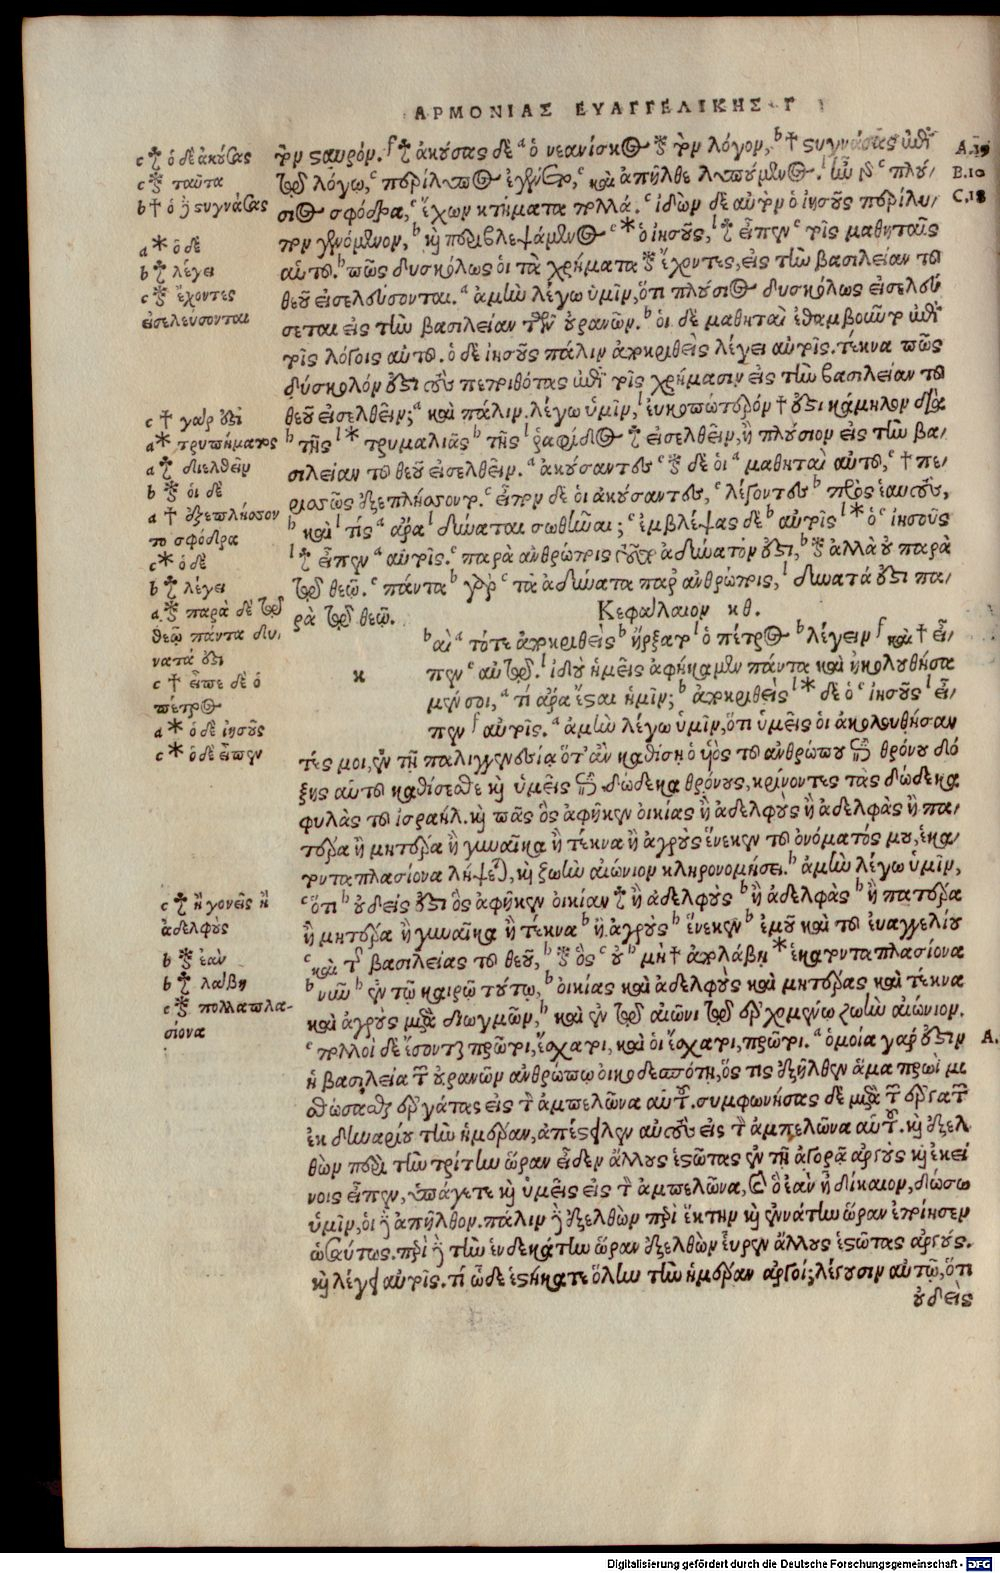 ΑΡΜΟΝΙΑΣ ΕΥΑΓΓΕΛΙΚΗΣ Γ
τὸν σταυρόν. f ☧ ἀκούσας δὲ a ὁ νεανίσκος ⁕ τὸν λόγον, b † στυγνάσας ἐπὶ
τῷ λόγῳ, c περίλυπος ἐγένετο, c καὶ ἀπῆλθε λυπούμενος. l ἦν δὲ c πλού/
σιος σφόδρα, c ἔχων κτήματα πολλά. c ἰδὼν δὲ αὐτὸν ὁ ἰησοῦς περίλυ/
πον γενόμενον, b κὴ περιβλεψάμενος c * ὁ ἰησοῦς, l ☧ εἶπεν c τοῖς μαθηταῖς
αὐτοῦ. b πῶς δυσκόλως οἱ τὰ χρήματα ⁕ ἔχοντες, εἰς τὴν βασιλείαν τοῦ
θεοῦ εἰσελεύσονται. a ἀμὴν λέγω ὑμῖν, ὅτι πλούσιος δυσκόλως εἰσελεύ
σεται εἰς τὴν βασιλείαν τῶν οὐρανῶν. b οἱ δὲ μαθηταὶ ἐθαμβοῦντο ἐπὶ
τοῖς λόγοις αὐτοῦ. ὁ δὲ ἰησοῦς πάλιν ἀποκριθεὶς λέγει αὐτοῖς. τέκνα πῶς
δύσκολόν ἐστι τοὺς πεποιθότας ἐπὶ τοῖς χρήμασιν εἰς τὴν βασιλείαν τοῦ
θεοῦ εἰσελθεῖν; a καὶ πάλιν. λέγω ὑμῖν, l εὐκοπώτερόν † ἐστι κάμηλον διὰ
b τῆς l * τρυμαλιᾶς b τῆς l ῥαφίδος ☧ εἰσελθεῖν, ἢ πλούσιον εἰς τὴν βα/
σιλείαν τοῦ θεοῦ εἰσελθεῖν. a ἀκούσαντες c ⁕ δὲ οἱ a μαθηταὶ αὐτοῦ, c † πε/
ρισσῶς ἐξεπλήσσοντο. c εἶπον δὲ οἱ ἀκούσαντες, c λέγοντες b πρὸς ἑαυτούς,
b καὶ l τίς a ἄρα l δύναται σωθῆναι; c ἐμβλέψας δὲ b αὐτοῖς l * ὁ c ἰησοῦς
l ☧ εἶπεν a αὐτοῖς. c παρὰ ἀνθρώποις τοῦτο ἀδύνατόν ἐστι, b ⁕ ἀλλὰ οὐ παρὰ
τῷ θεῷ. c πάντα b γὰρ c τὰ ἀδύνατα παρ' ἀνθρώποις, l δυνατά ἐστι πα/
ρὰ τῷ θεῷ.
Κεφάλαιον κθ.
b αὶ a τότε ἀποκριθεὶς b ἤρξατο l ὁ πέτρος b λέγειν f καὶ † εἶ/
πεν c αὐτῷ. l ἰδοὺ ἡμεῖς ἀφήκαμεν πάντα καὶ ἠκολουθήσα
μέν σοι, a τί ἄρα ἔσται ἡμῖν; b ἀποκριθεὶς l * δὲ ὁ c ἰησοῦς l εἶ/
πεν f αὐτοῖς. a ἀμὴν λέγω ὑμῖν, ὅτι ὑμεῖς οἱ ἀκολουθήσαν
τές μοι, ἐν τῇ παλιγγενεσίᾳ ὅτ' ἂν καθίσῃ ὁ υἱὸς τοῦ ἀνθρώπου ἐπὶ θρόνου δό
ξης αὐτοῦ καθίσεσθε κὴ ὑμεῖς ἐπὶ δώδεκα θρόνους, κρίνοντες τὰς δώδεκα
φυλὰς τοῦ ἰσραήλ. κὴ πᾶς ὃς ἀφῆκεν οἰκίας ἢ ἀδελφοὺς ἢ ἀδελφὰς ἢ πα/
τέρα ἢ μητέρα ἢ γυναῖκα ἢ τέκνα ἢ ἀγροὺς ἕνεκεν τοῦ ὀνόματός μου, ἑκα/
τονταπλασίονα λήψεται, κὴ ζωὴν αἰώνιον κληρονομήσει. b ἀμὴν λέγω ὑμῖν,
c ὅτι b οὐδείς ἐστι ὃς ἀφῆκεν οἰκίαν ☧ ἢ ἀδελφοὺς b ἢ ἀδελφὰς b ἢ πατέρα
ἢ μητέρα ἢ γυναῖκα ἢ τέκνα b ἢ ἀγροὺς b ἕνεκεν b ἐμοῦ καὶ τοῦ εὐαγγελίου
c καὶ τῆς βασιλείας τοῦ θεοῦ, b ⁕ ὃς c οὐ b μὴ † ἀπολάβῃ * ἑκατονταπλασίονα
b νῦν b ἐν τῷ καιρῷ τούτῳ, b οἰκίας καὶ ἀδελφοὺς καὶ μητέρας καὶ τέκνα
καὶ ἀγροὺς μετὰ διωγμῶν, b καὶ ἐν τῷ αἰῶνι τῷ ἐρχομένῳ ζωὴν αἰώνιον.
c πολλοὶ δὲ ἔσονται πρῶτοι, ἔσχατοι, καὶ οἱ ἔσχατοι, πρῶτοι. a ὁμοία γάρ ἐστιν
ἡ βασιλεία τῶν οὐρανῶν ἀνθρώπῳ οἰκοδεσπότῃ, ὅς τις ἐξῆλθεν ἅμα πρωῒ μι
σθώσασθαι ἐργάτας εἰς τὸν ἀμπελῶνα αὐτοῦ. συμφωνήσας δὲ μετὰ τῶν ἐργατῶν
ἐκ δηναρίου τὴν ἡμέραν, ἀπέστειλεν αὐτοὺς εἰς τὸν ἀμπελῶνα αὐτοῦ. κὴ ἐξελ
θὼν περὶ τὴν τρίτην ὥραν εἶδεν ἄλλους ἑστῶτας ἐν τῇ ἀγορᾷ ἀργοὺς κὴ ἐκεί
νοις εἶπεν, ὑπάγετε κὴ ὑμεῖς εἰς τὸν ἀμπελῶνα, καὶ ὃ ἐὰν ᾖ δίκαιον, δώσω
ὑμῖν, οἱ δὲ ἀπῆλθον. πάλιν δὲ ἐξελθὼν περὶ ἕκτην κὴ ἐννάτην ὥραν ἐποίησεν
ὡσαύτως. περὶ δὲ τὴν ἑνδεκάτην ὥραν ἐξελθὼν εὗρεν ἄλλους ἑστῶτας ἀργούς.
κὴ λέγει αὐτοῖς. τί ὧδε ἑστήκατε ὅλην τὴν ἡμέραν ἀργοί; λέγουσιν αὐτῷ, ὅτι
οὐδεὶς
c ☧ ὁ δὲ ἀκούσας
c ⁕ ταῦτα
b † ὁ δὲ στυγνάσας
a * ὁ δὲ
b ☧ λέγει
c ⁕ ἔχοντες
εἰσελεύσονται
c † γάρ ἐστι
a * τρυπήματος
a ☧ διελθεῖν
b ⁕ οἱ δὲ
a † ἐξεπλήσσον
το σφόδρα
c * ὁ δὲ
b ☧ λέγει
a ⁕ παρὰ δὲ τῷ
θεῷ πάντα δυ/
νατά ἐστι
c † εἶπε δὲ ὁ
πέτρος
a * ὁ δὲ ἰησοῦς
c * ὁ δὲ εἶπεν
κ
c ☧ ἢ γονεῖς ἢ
ἀδελφοὺς
b ⁕ ἐὰν
b ☧ λάβῃ
c ⁕ πολλαπλα-
σίονα
A. 19
B. 10
C. 18
A.
Digitalisierung gefördert durch die Deutsche Forschungsgemeinschaft - DFG